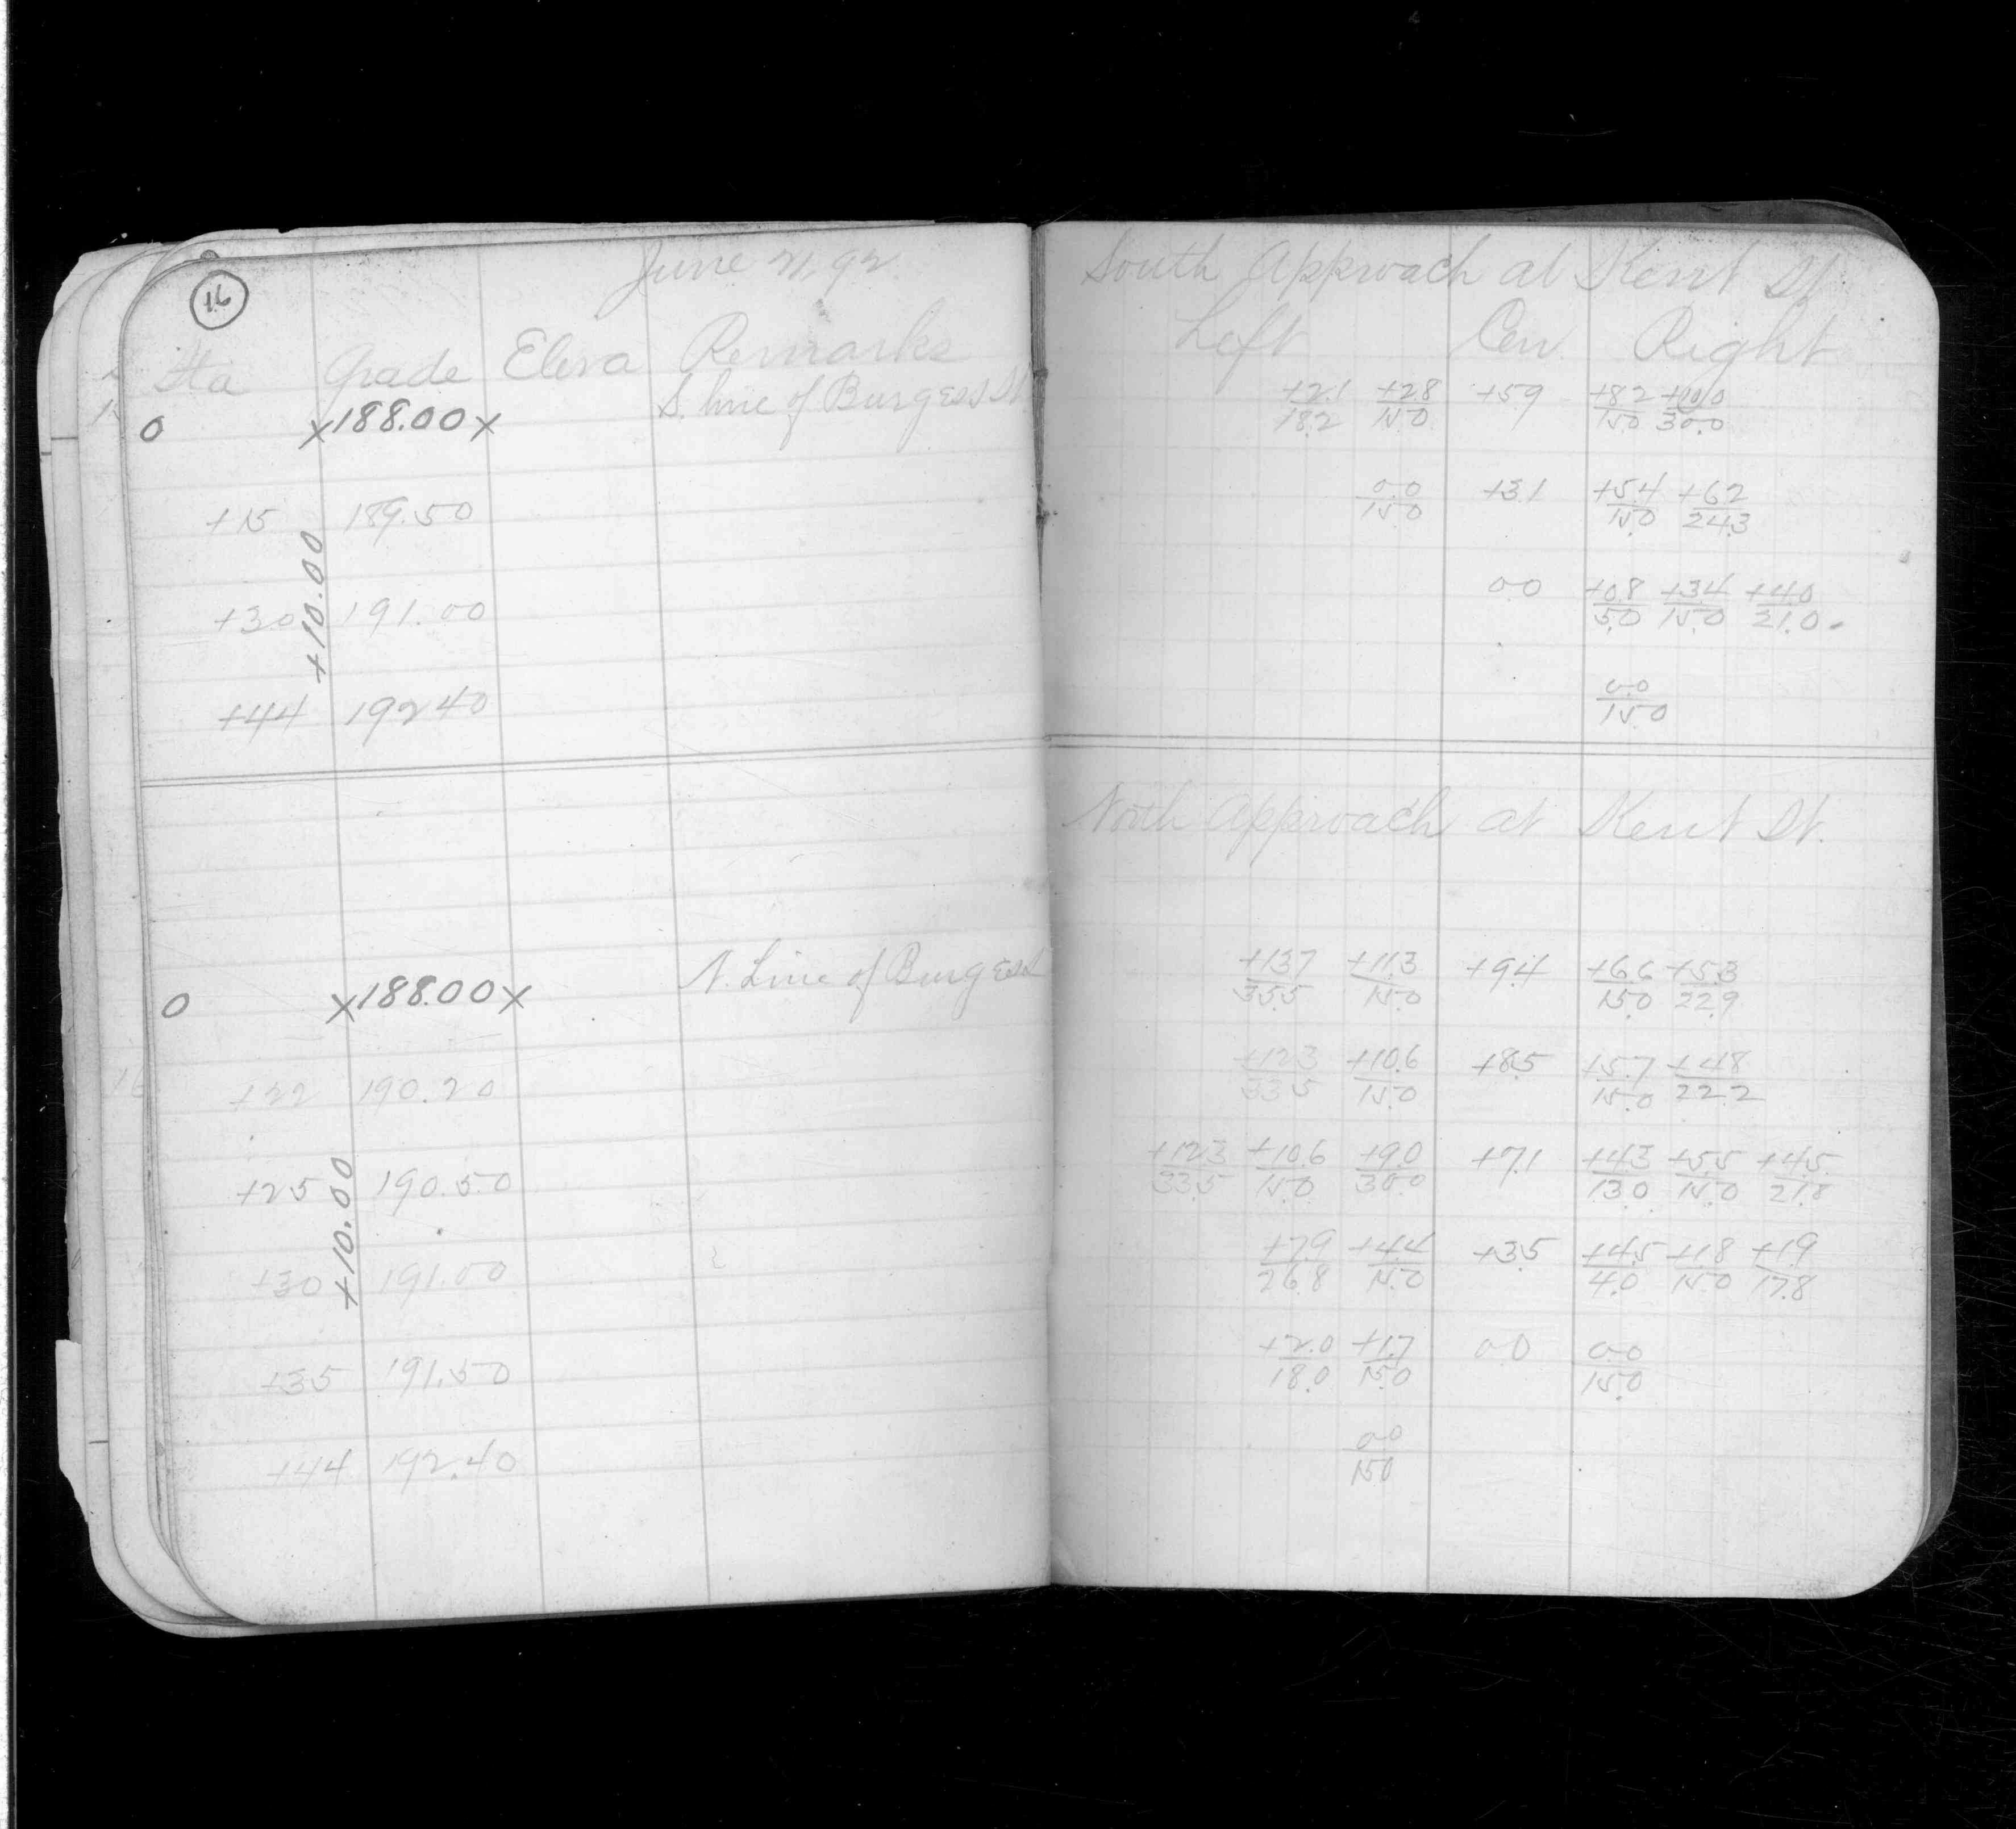 16
June 21, 92.
Sta Grade Eleva Remarks
0 x188.00x S. line of Burgess St
+15 189.50
+10.00
+30 191.00
+44 192.40
0 x188.00x N. Line of Burgess
+22 190.20
+25 190.50
+10.00
+30 191.00
+35 191.50
+44 192.40
South Approach at Kent St.
Left Cen Right
+2.1 +2.8 +5.9 +8.2 +10.0
18.2 15.0 15.0 30.0
0.0 +3.1 +5.4 +6.2
15.0 15.0 24.3
0.0 +0.8 +3.4 +4.0
5.0 15.0 21.0
0.0
15.0
North Approach at Kent St.
+13.7 +11.3 +9.4 +6.6 +5.3
35.5 15.0 15.0 22.9
+12.3 +10.6 +8.5 +5.7 +4.8
33.5 15.0 15.0 22.2
+12.3 +10.6 +9.0 +7.1 +4.3 +5.5 +4.5
33.5 15.0 30.0 13.0 15.0 21.8
+7.9 +4.4 +3.5 +4.5 +1.8 +1.9
26.8 15.0 4.0 15.0 17.8
+2.0 +1.7 0.0 0.0
18.0 15.0 15.0
0.0
15.0